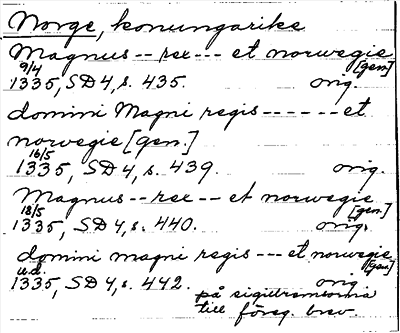 Norge, konungarike
Magnus -- rex --- et norwegie
9/4 [gen]
1335, SD 4, s. 435. orig.
domini Magni regis ------ et
norwegie [gen.]
16/5
1335, SD 4, s. 439. orig.
Magnus -- rex -- et norwegie
18/5 [gen.]
1335, SD 4, s. 440. orig.
domini magni regis --- et norwegie
u.d. [gen]
1335, SD 4, s. 442. orig
på sigillremsorna
till föreg. brev